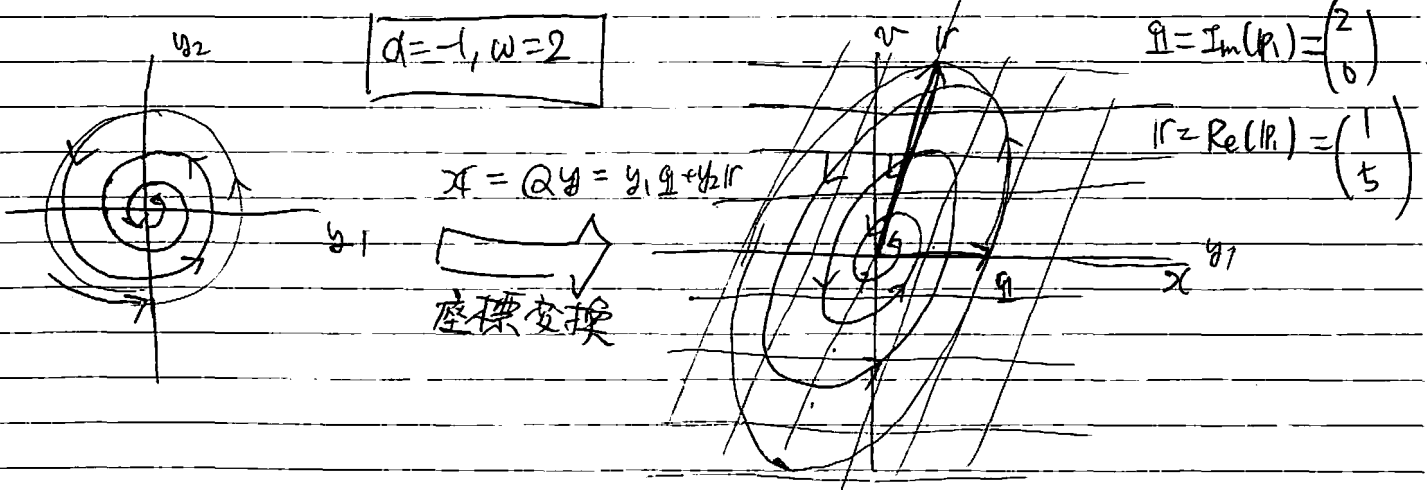 y₂
α=-1, ω=2
y₁
x = Qy = y₁q+y₂r
座標変換
v
r
q
x
y₁
q = Im(p₁) = (2 0)
r = Re(p₁) = (1 5)